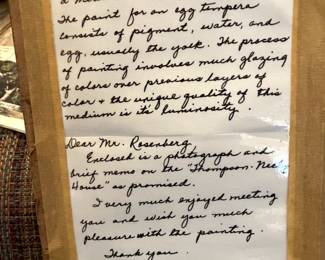 The paint for an egg tempera
consists of pigment, water, and
egg, usually the yolk. The process
of painting involves much glazing
of colors over previous layers of
color & the unique quality of this
medium is it's luminosity.
Dear Mr. Rosenberg,
Enclosed is a photograph and
brief memo on the "Thompson-Neely
House" as promised.
I very much enjoyed meeting
you and wish you much
pleasure with the painting.
Thank you.